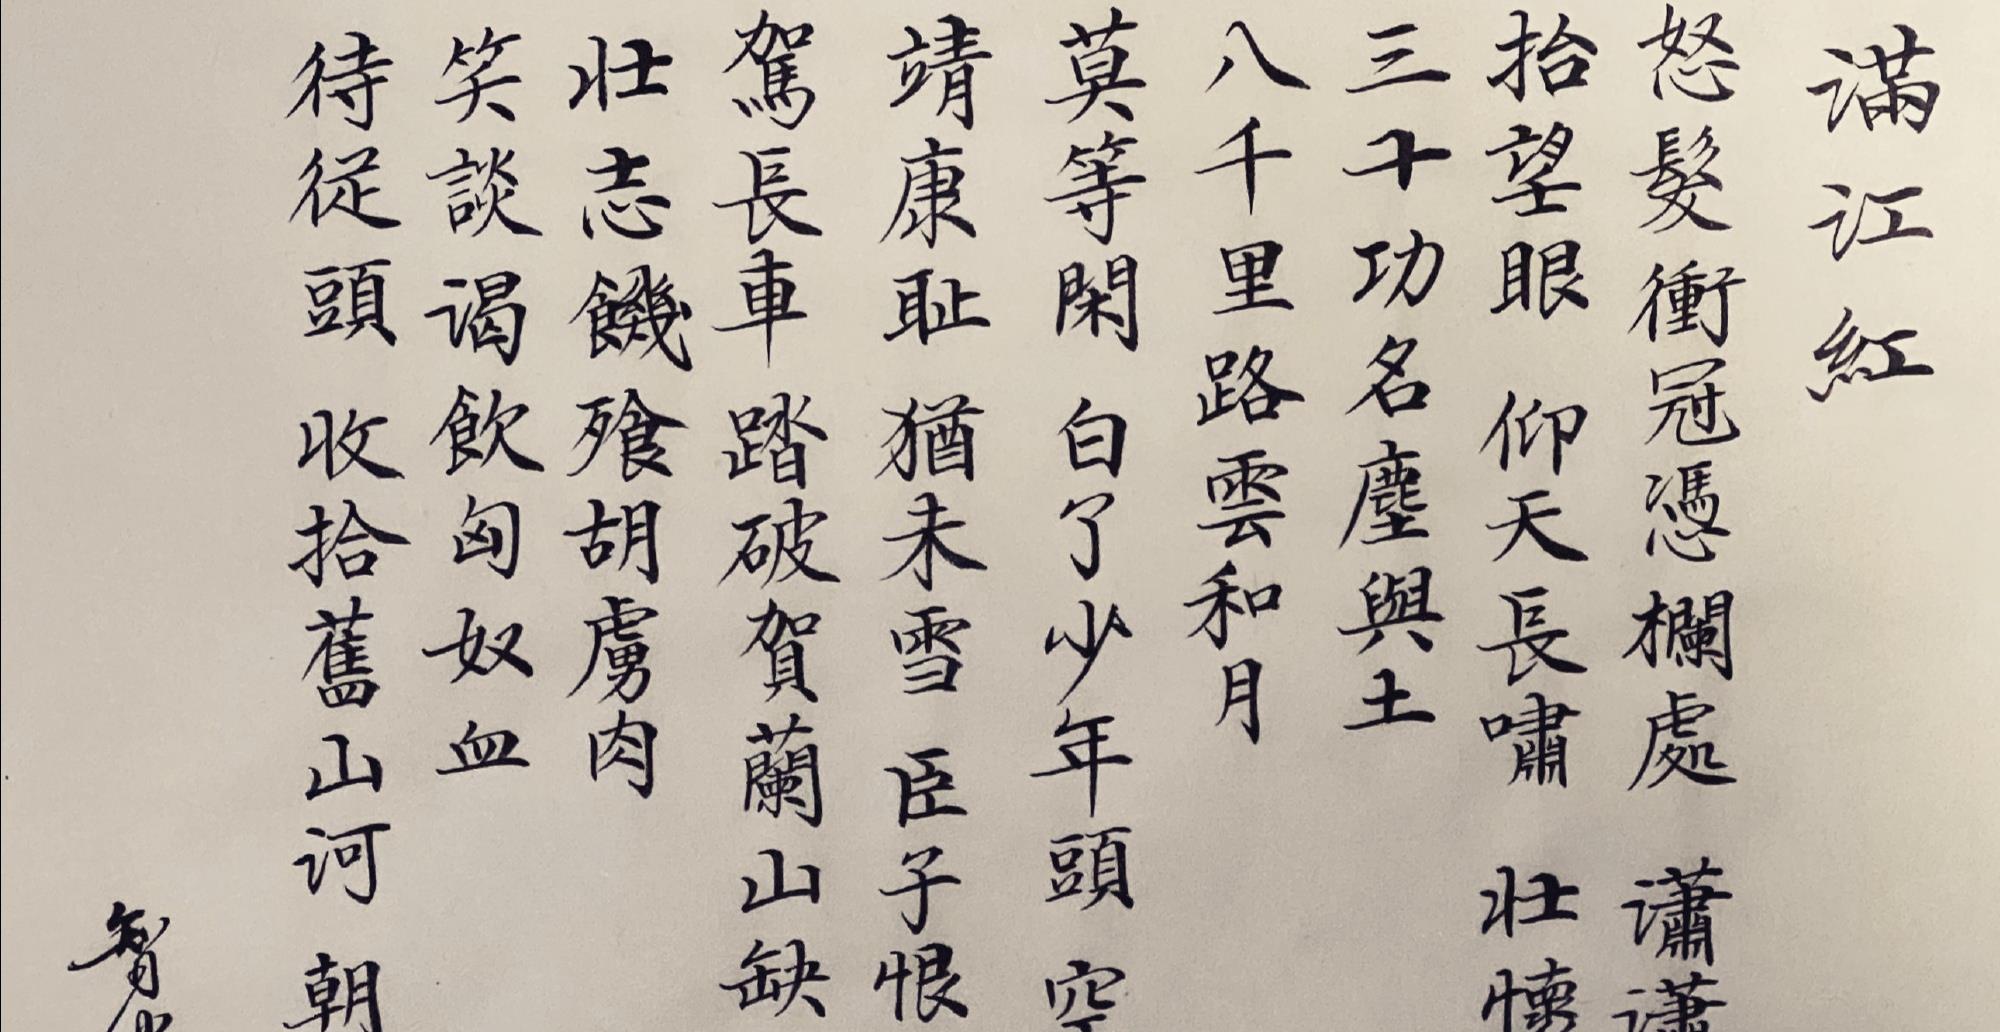 滿江紅
怒髮衝冠憑欄處 瀟瀟
抬望眼 仰天長嘯 壯懷
三十功名塵與土
八千里路雲和月
莫等閑 白了少年頭 空
靖康耻 猶未雪 臣子恨
駕長車 踏破賀蘭山缺
壯志饑飱胡虜肉
笑談渴飲匈奴血
待從頭 收拾舊山河 朝